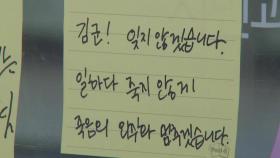 김군! 잊지 않겠습니다.
일하다 죽지 않게
죽음의 외주화 멈추겠습니다.